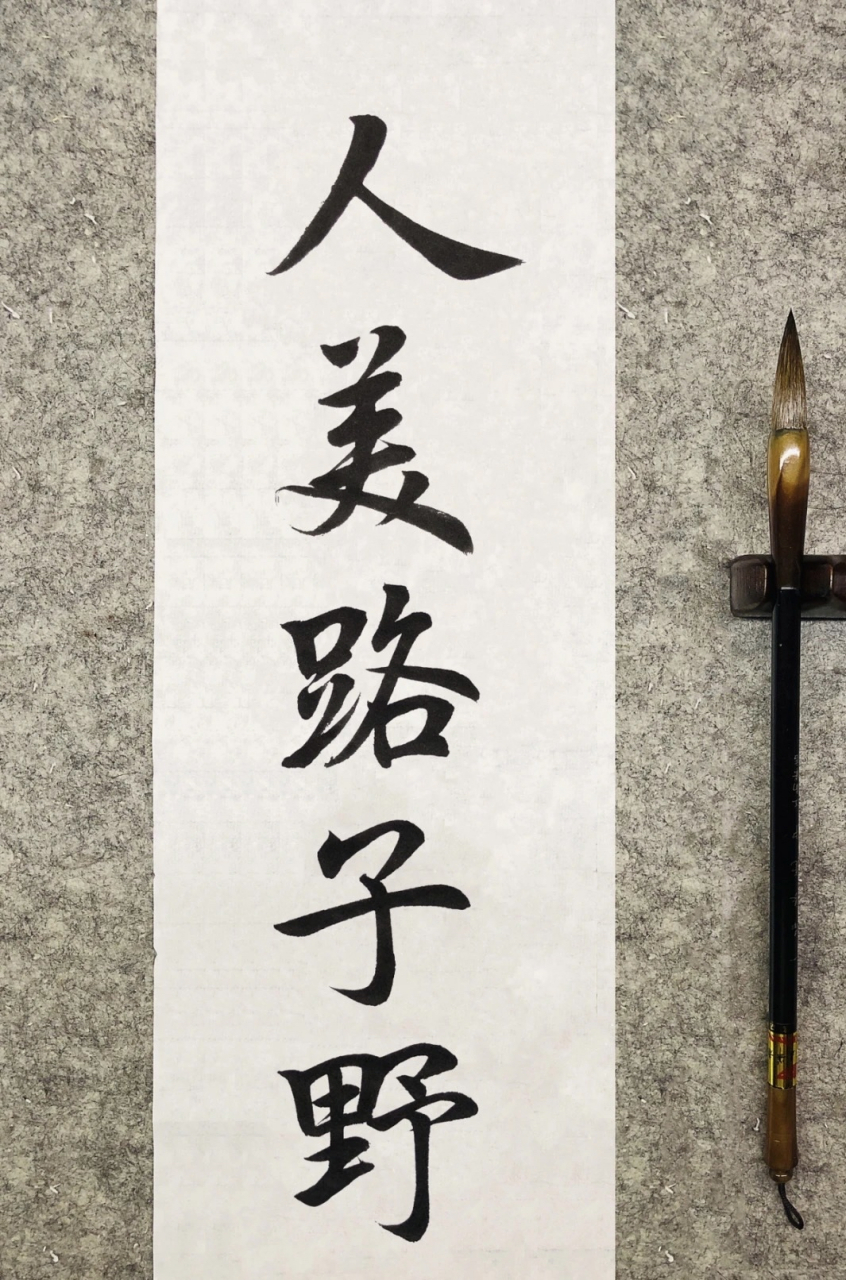 人美路子野